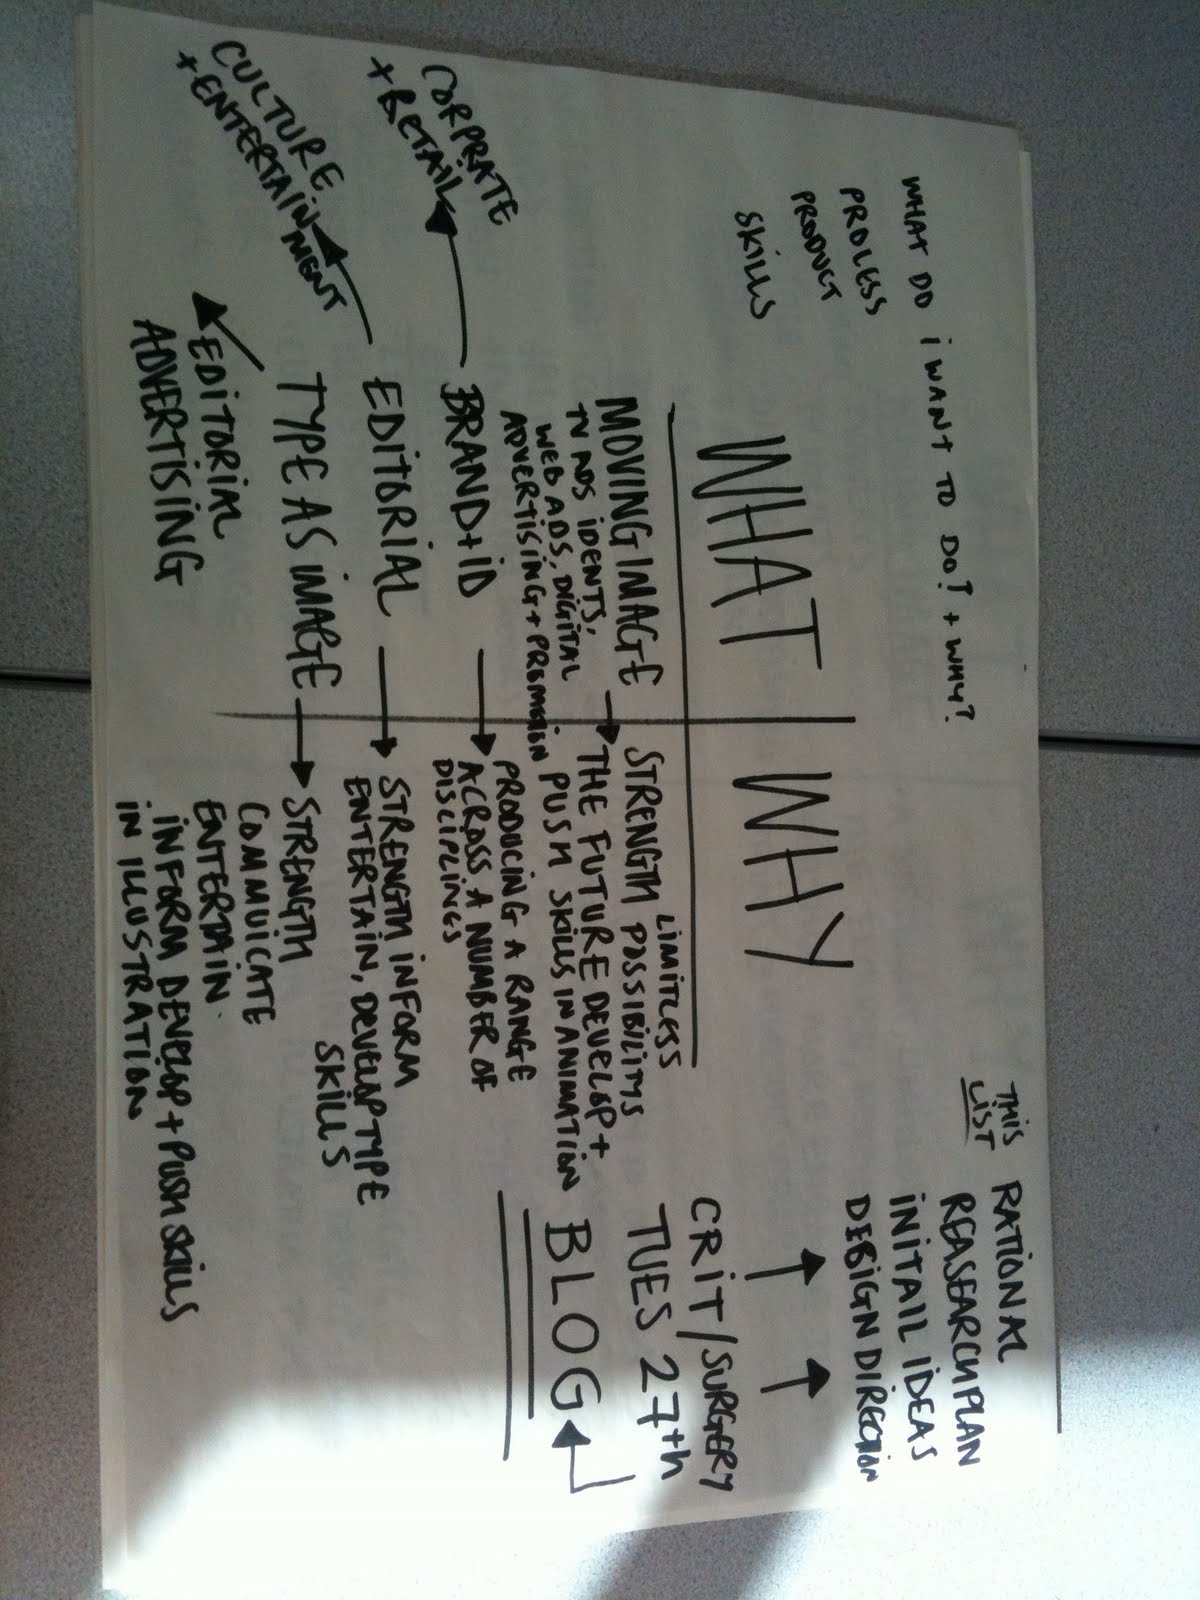 WHAT DO i WANT TO DO? + WHY?
PROCESS
PRODUCT
SKILLS
THIS
LIST
RATIONAL
REASEARCH PLAN
INITAIL IDEAS
DESIGN DIRECTION
WHAT
WHY
MOVING IMAGE
TV ADS IDENTS,
WEB ADS, DIGITAL
ADVERTISING + PROMOTION
LIMITLESS
STRENGTH POSSIBILITYS
THE FUTURE DEVELOP +
PUSH SKILLS IN ANIMATION
BRAND + ID
PRODUCING A RANGE
ACROSS A NUMBER OF
DISCIPLINES
CORPRATE
+ RETAIL
EDITORIAL
STRENGTH INFORM
ENTERTAIN, DEVELOP TYPE
SKILLS
CULTURE
+ ENTERTAINMENT
TYPE AS IMAGE
STRENGTH
COMMUICATE
ENTERTAIN
INFORM DEVELOP + PUSH SKILLS
IN ILLUSTRATION
EDITORIAL
ADVERTISING
CRIT/SURGERY
TUES 27th
BLOG